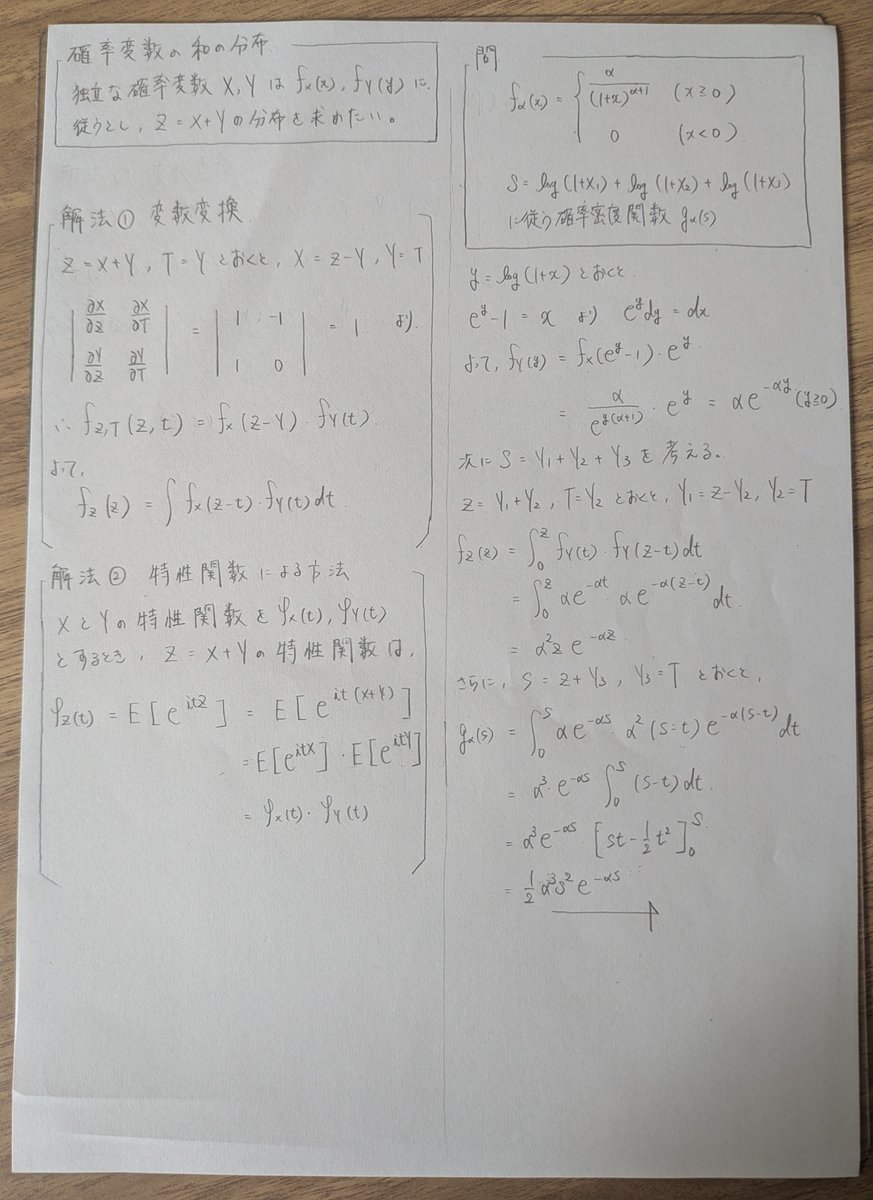 確率変数の和の分布
独立な確率変数 X, Y は fx(x), fY(y) に
従うとし、Z = X+Y の分布を求めたい。
解法① 変数変換
Z = X+Y, T = Y とおくと, X = Z-Y, Y = T
| ∂X/∂Z ∂X/∂T ; ∂Y/∂Z ∂Y/∂T | = | 1 -1 ; 1 0 | = 1 より
∴ fZ,T(z,t) = fx(z-Y)・fY(t).
よって,
fZ(z) = ∫ fx(z-t)・fY(t) dt
解法② 特性関数による方法
XとYの特性関数を φx(t), φY(t)
とするとき, Z = X+Yの特性関数は,
φZ(t) = E[e^{itZ}] = E[e^{it(X+Y)}]
= E[e^{itX}]・E[e^{itY}]
= φx(t)・φY(t)
問
fα(x) = { α/(1+x)^{α+1} (x≧0)
0 (x<0)
S = log(1+X1) + log(1+X2) + log(1+X3)
に従う確率密度関数 gα(s)
y = log(1+x) とおくと.
e^y - 1 = x より e^y dy = dx
よって, fY(y) = fx(e^y - 1)・e^y
= α/e^{y(α+1)}・e^y = αe^{-αy} (y≧0)
次に S = Y1 + Y2 + Y3 を考える。
Z = Y1+Y2, T = Y2 とおくと, Y1 = Z-Y2, Y2 = T
fZ(z) = ∫_0^z fY(t)・fY(z-t) dt
= ∫_0^z αe^{-αt}・αe^{-α(z-t)} dt.
= α²z e^{-αz}
さらに, S = Z+Y3, Y3 = T とおくと,
gα(s) = ∫_0^s αe^{-αs}・α²(s-t) e^{-α(s-t)} dt
= α³e^{-αs} ∫_0^s (s-t) dt.
= α³e^{-αs} [st - 1/2 t²]_0^s
= 1/2 α³s²e^{-αs}